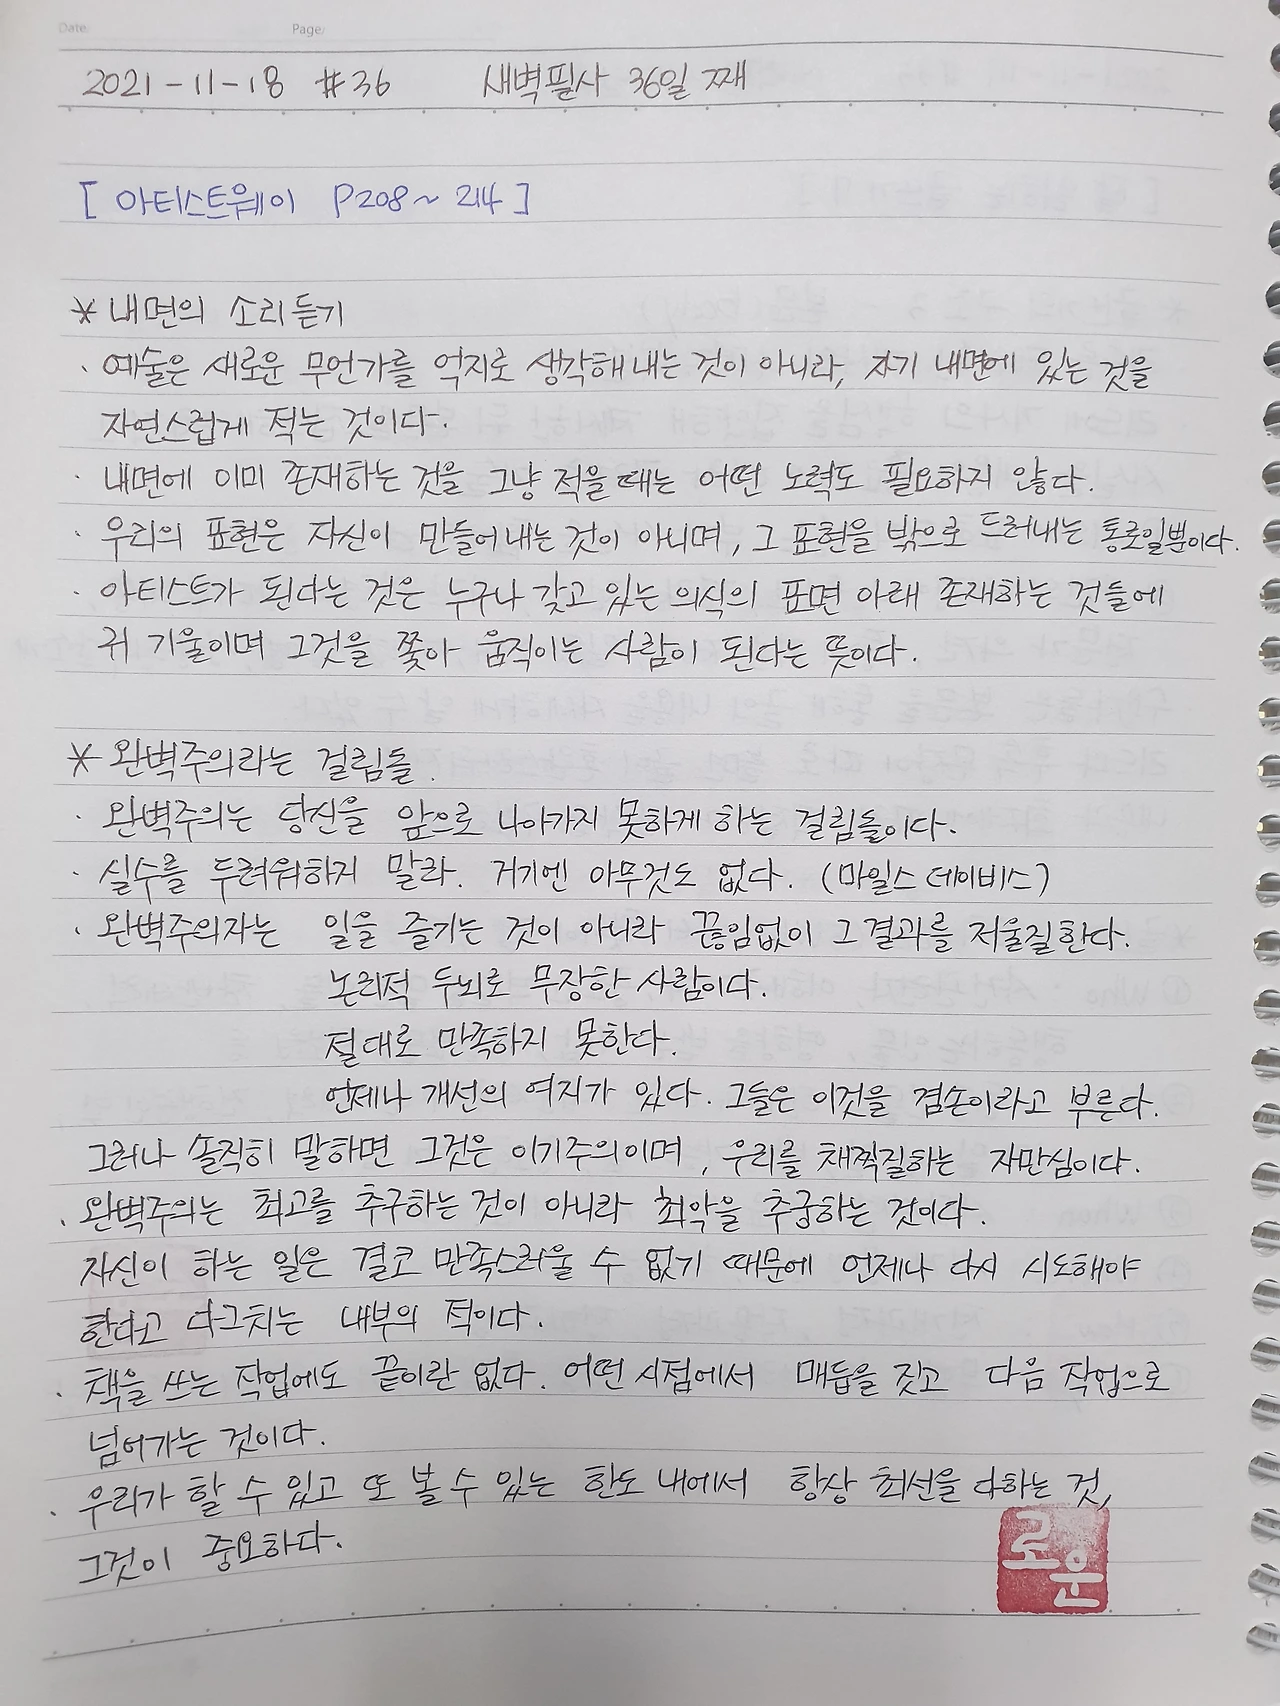 Date/ Page/
2021-11-18 #36 새벽필사 36일 째
[ 아티스트웨이 P208~214 ]
* 내면의 소리듣기
· 예술은 새로운 무언가를 억지로 생각해내는 것이 아니라, 자기 내면에 있는 것을
자연스럽게 적는 것이다.
· 내면에 이미 존재하는 것을 그냥 적을 때는 어떤 노력도 필요하지 않다.
· 우리의 표현은 자신이 만들어내는 것이 아니며, 그 표현을 밖으로 드러내는 통로일뿐이다.
· 아티스트가 된다는 것은 누구나 갖고 있는 의식의 표면 아래 존재하는 것들에
귀 기울이며 그것을 쫓아 움직이는 사람이 된다는 뜻이다.
* 완벽주의라는 걸림돌.
· 완벽주의는 당신을 앞으로 나아가지 못하게 하는 걸림돌이다.
· 실수를 두려워하지 말라. 거기엔 아무것도 없다. (마일스 데이비스)
· 완벽주의자는 일을 즐기는 것이 아니라 끊임없이 그 결과를 저울질한다.
논리적 두뇌로 무장한 사람이다.
절대로 만족하지 못한다.
언제나 개선의 여지가 있다. 그들은 이것을 겸손이라고 부른다.
그러나 솔직히 말하면 그것은 이기주의이며, 우리를 채찍질하는 자만심이다.
· 완벽주의는 최고를 추구하는 것이 아니라 최악을 추궁하는 것이다.
자신이 하는 일은 결코 만족스러울 수 없기 때문에 언제나 다시 시도해야
한다고 다그치는 내부의 적이다.
· 책을 쓰는 작업에도 끝이란 없다. 어떤 시점에서 매듭을 짓고 다음 작업으로
넘어가는 것이다.
· 우리가 할 수 있고 또 볼 수 있는 한도 내에서 항상 최선을 다하는 것,
그것이 중요하다.
로운